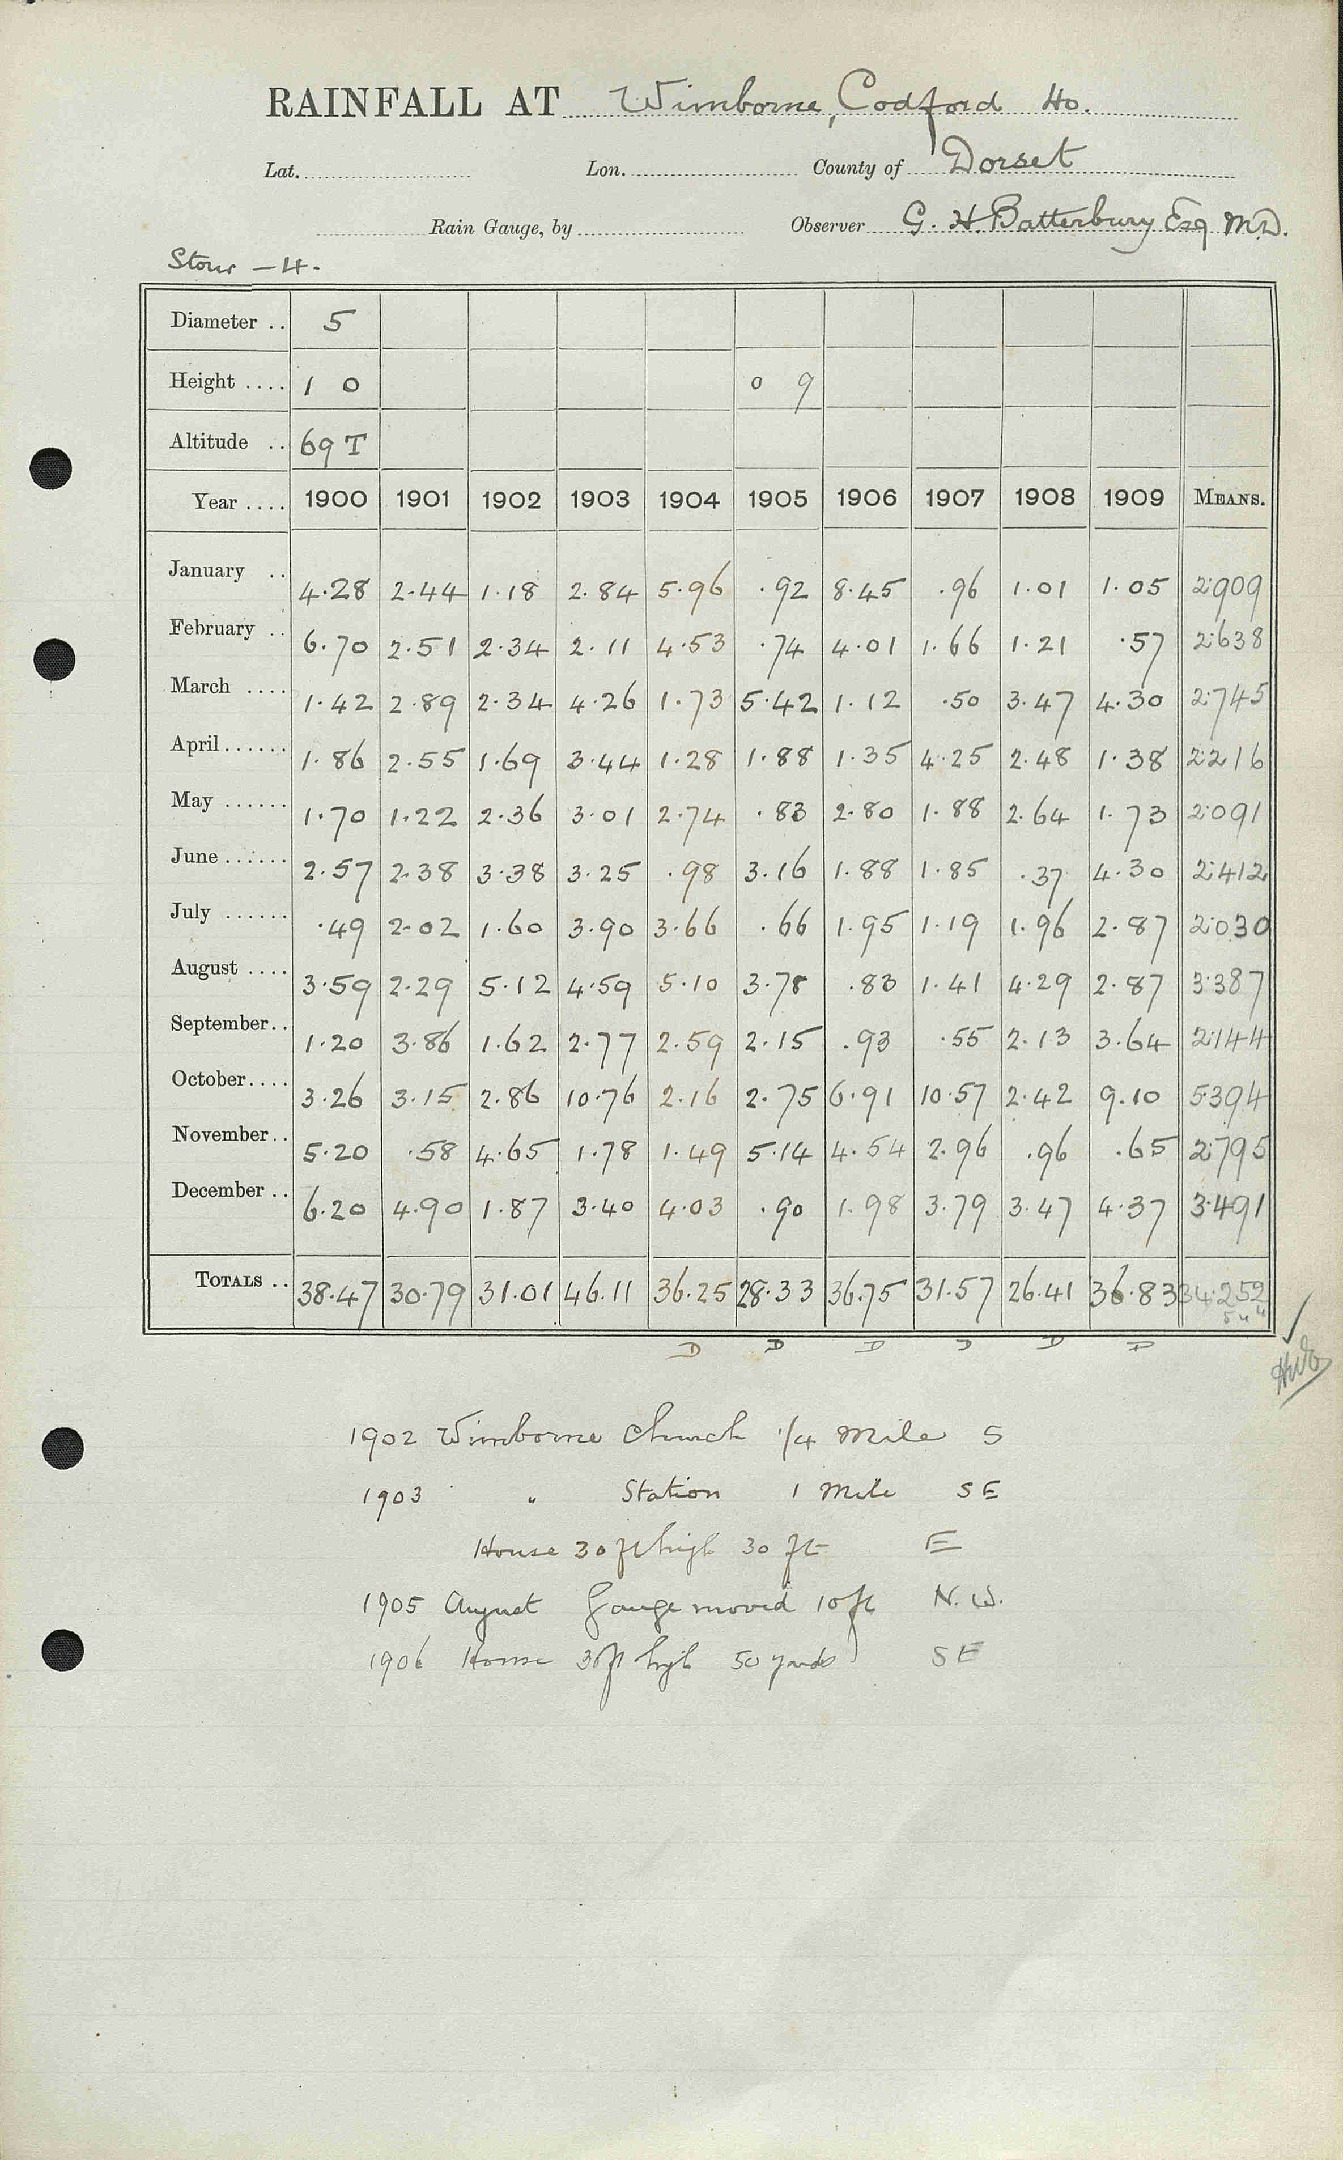 RAINFALL AT Wimborne, Codford Ho.
Lat. Lon. County of Dorset
Rain Gauge, by Observer G. H. Batterbury Esq M.D.
Stour - 4.
Diameter .. 5
Height .... 1 0 0 9
Altitude .. 69 T
Year .... 1900 1901 1902 1903 1904 1905 1906 1907 1908 1909 MEANS.
January .. 4.28 2.44 1.18 2.84 5.96 .92 8.45 .96 1.01 1.05 2.909
February .. 6.70 2.51 2.34 2.11 4.53 .74 4.01 1.66 1.21 .57 2.638
March .... 1.42 2.89 2.34 4.26 1.73 5.42 1.12 .50 3.47 4.30 2.745
April...... 1.86 2.55 1.69 3.44 1.28 1.88 1.35 4.25 2.48 1.38 2.216
May ...... 1.70 1.22 2.36 3.01 2.74 .83 2.80 1.88 2.64 1.73 2.091
June...... 2.57 2.38 3.38 3.25 .98 3.16 1.88 1.85 .37 4.30 2.412
July ...... .49 2.02 1.60 3.90 3.66 .66 1.95 1.19 1.96 2.87 2.030
August .... 3.59 2.29 5.12 4.59 5.10 3.78 .83 1.41 4.29 2.87 3.387
September.. 1.20 3.86 1.62 2.77 2.59 2.15 .93 .55 2.13 3.64 2.144
October.... 3.26 3.15 2.86 10.76 2.16 2.75 6.91 10.57 2.42 9.10 5.394
November.. 5.20 .58 4.65 1.78 1.49 5.14 4.54 2.96 .96 .65 2.795
December .. 6.20 4.90 1.87 3.40 4.03 .90 1.98 3.79 3.47 4.37 3.491
TOTALS .. 38.47 30.79 31.01 46.11 36.25 28.33 36.75 31.57 26.41 36.83 34.252
D D D D D D
1902 Wimborne Church 1/4 Mile S
1903 " Station 1 Mile SE
House 30 ft high 30 ft E
1905 August Gauge moved 10 ft N.W.
1906 House 30 ft high 50 yards SE